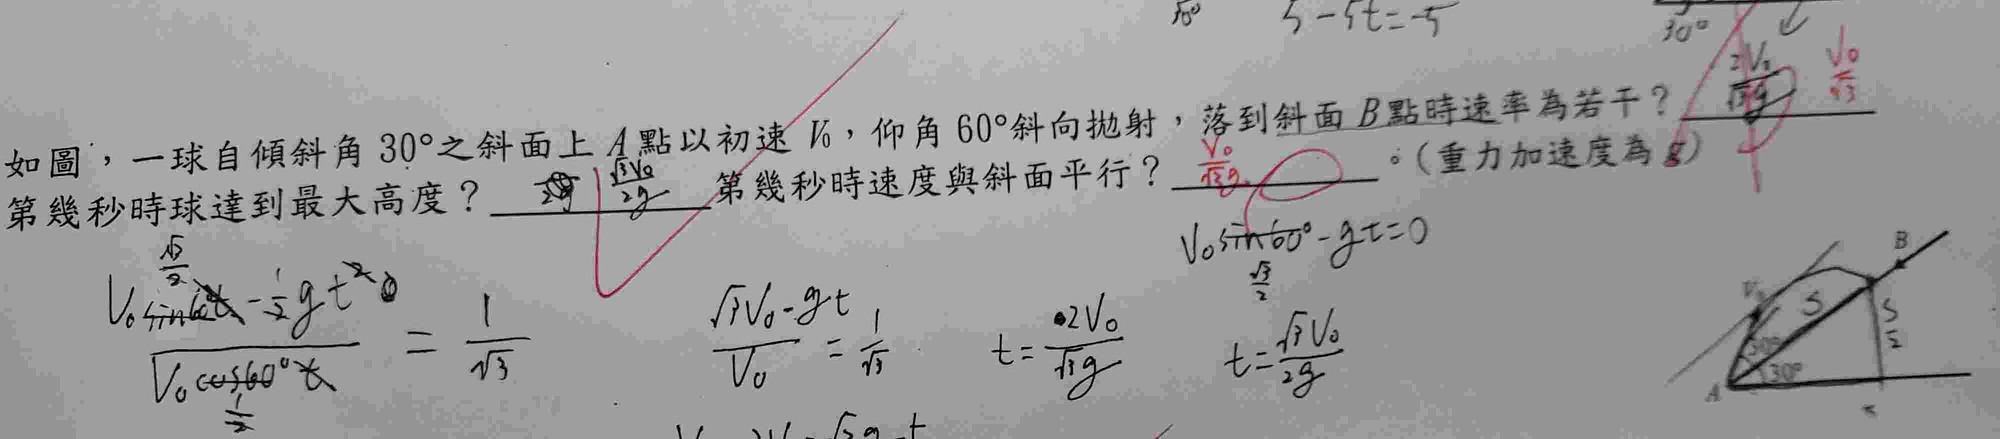 5-5t=-5
30°
如圖,一球自傾斜角 30°之斜面上 A 點以初速 V₀,仰角 60°斜向拋射,落到斜面 B 點時速率為若干? V₀/√3
第幾秒時球達到最大高度? √3V₀/2g 第幾秒時速度與斜面平行? V₀/√3g 。(重力加速度為 g)
V₀sin60°-gt=0
√3/2
√3/2
1/2
=1/√3
(√3V₀-gt)/V₀=1/√3
t=2V₀/√3g
t=√3V₀/2g
B
S
S/2
30°
30°
A